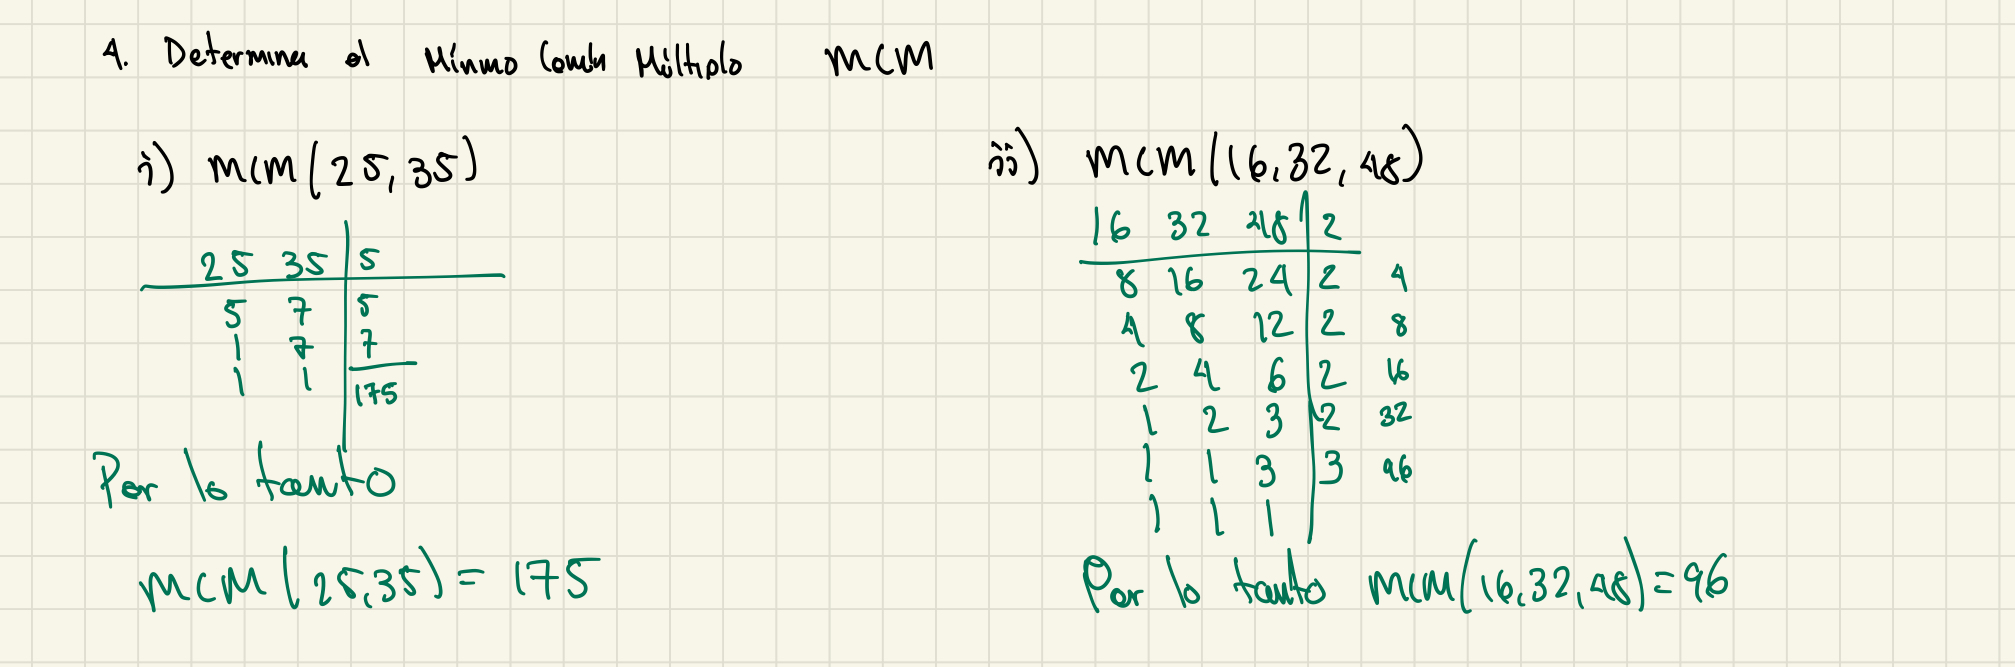 4. Determina el Mínmo Comun Múltiplo MCM
i) MCM(25,35)
25 35 | 5
5 7 | 5
1 7 | 7
1 1 | 175
Por lo tanto
MCM(25,35) = 175
ii) MCM(16,32,48)
16 32 48 | 2
8 16 24 | 2 4
4 8 12 | 2 8
2 4 6 | 2 16
1 2 3 | 2 32
1 1 3 | 3 96
1 1 1
Por lo tanto MCM(16,32,48)=96